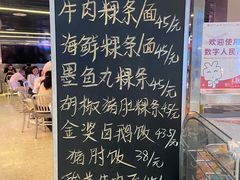 牛肉粿条/面45/元
海鲜粿条/面45/元
墨鱼丸粿条45/元
胡椒猪肚粿条45/元
金奖卤鹅饭43.5/元
猪肘饭 38/元
欢迎使用
数字人民